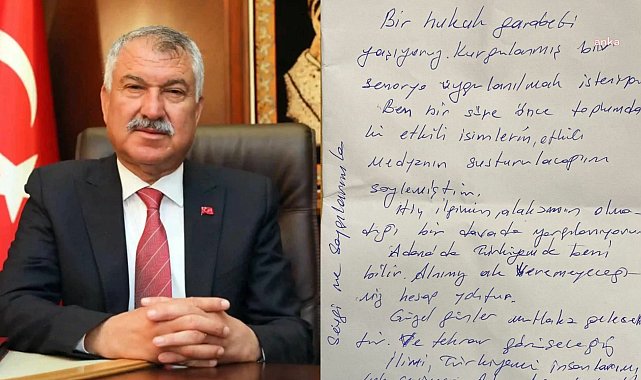 anka
Bir hukuk garabeti
yaşıyoruz. Kurgulanmış bir
senaryo uygulanılmak isteniyo
Ben bir süre önce toplumda
ki etkili isimlerin, etkili
medyanın susturulacağını
söylemiştim.
Hiç ilgimin, alakamın olma
dığı bir davada yargılanıyorum
Adana'da Türkiyemde beni
bilir. Alnımız ak veremeyeceği
miz hesap yoktur.
Güzel günler mutlaka gelecek
tir. Ve tekrar görüşeceğiz
İlimi, Türkiyemi, insanlarımı,
Sevgi ve Saygılarımla